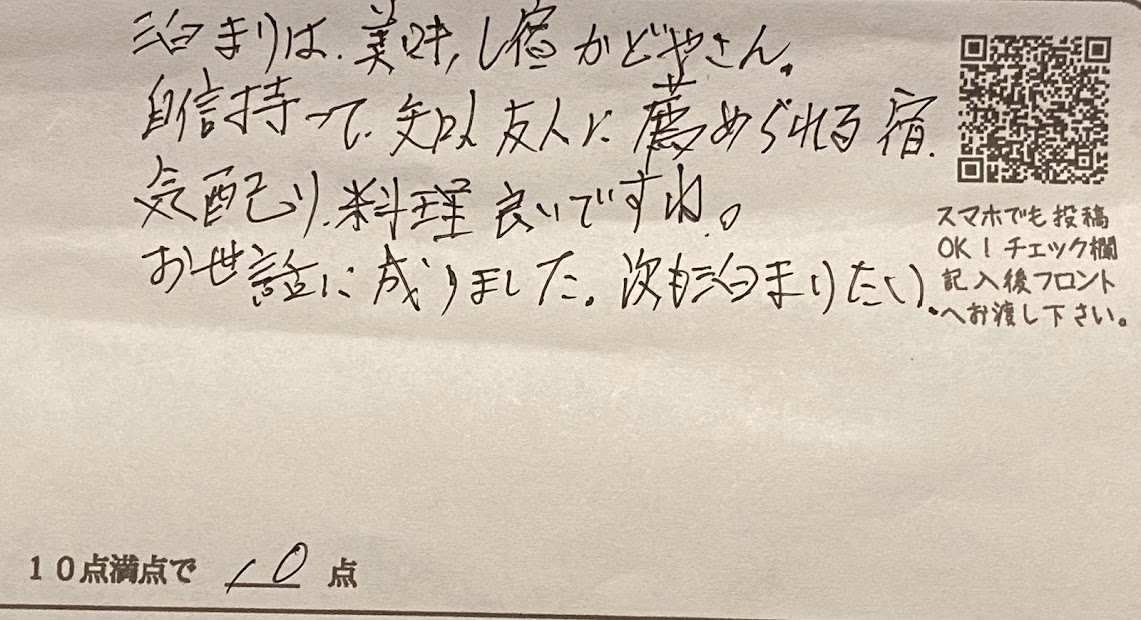 泊まりは、美味し宿かどやさん。
自信持って、知人友人に薦められる宿。
気配り、料理良いですね。
お世話に成りました。次も泊まりたい。
スマホでも投稿
OK！チェック欄
記入後フロント
へお渡し下さい。
10点満点で 10 点